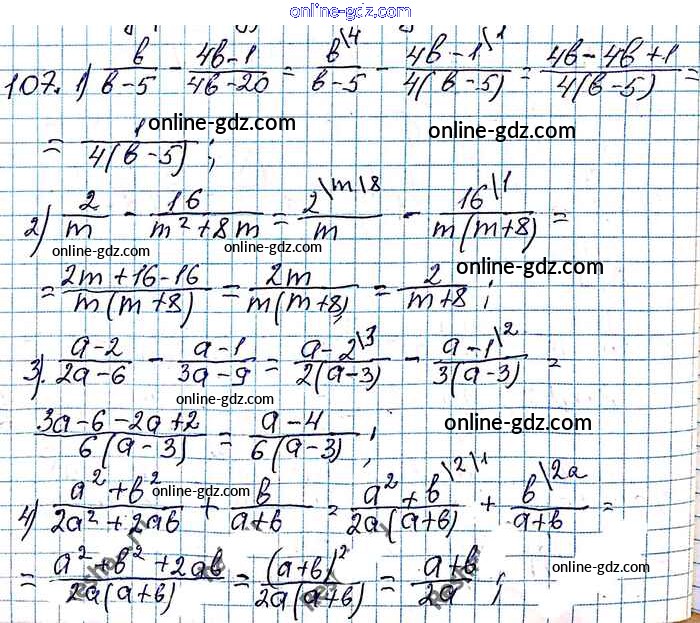 online-gdz.com
107. 1) b/(b-5) - (4b-1)/(4b-20) = b\4/(b-5) - (4b-1)\1/(4(b-5)) = (4b-4b+1)/(4(b-5)) =
= 1/(4(b-5)) ;
online-gdz.com online-gdz.com
2) 2/m - 16/(m²+8m) = 2\m+8/m - 16\1/(m(m+8)) =
online-gdz.com online-gdz.com online-gdz.com
= (2m+16-16)/(m(m+8)) = 2m/(m(m+8)) = 2/(m+8) ;
3) (a-2)/(2a-6) - (a-1)/(3a-9) = (a-2)\3/(2(a-3)) - (a-1)\2/(3(a-3)) =
online-gdz.com
(3a-6-2a+2)/(6(a-3)) = (a-4)/(6(a-3)) ;
online-gdz.com
4) (a²+b²)/(2a²+2ab) + b/(a+b) = (a²+b²)\1/(2a(a+b)) + b\2a/(a+b) =
online-gdz.com
= (a²+b²+2ab)/(2a(a+b)) = (a+b)²/(2a(a+b)) = (a+b)/2a ;
online-gdz.com